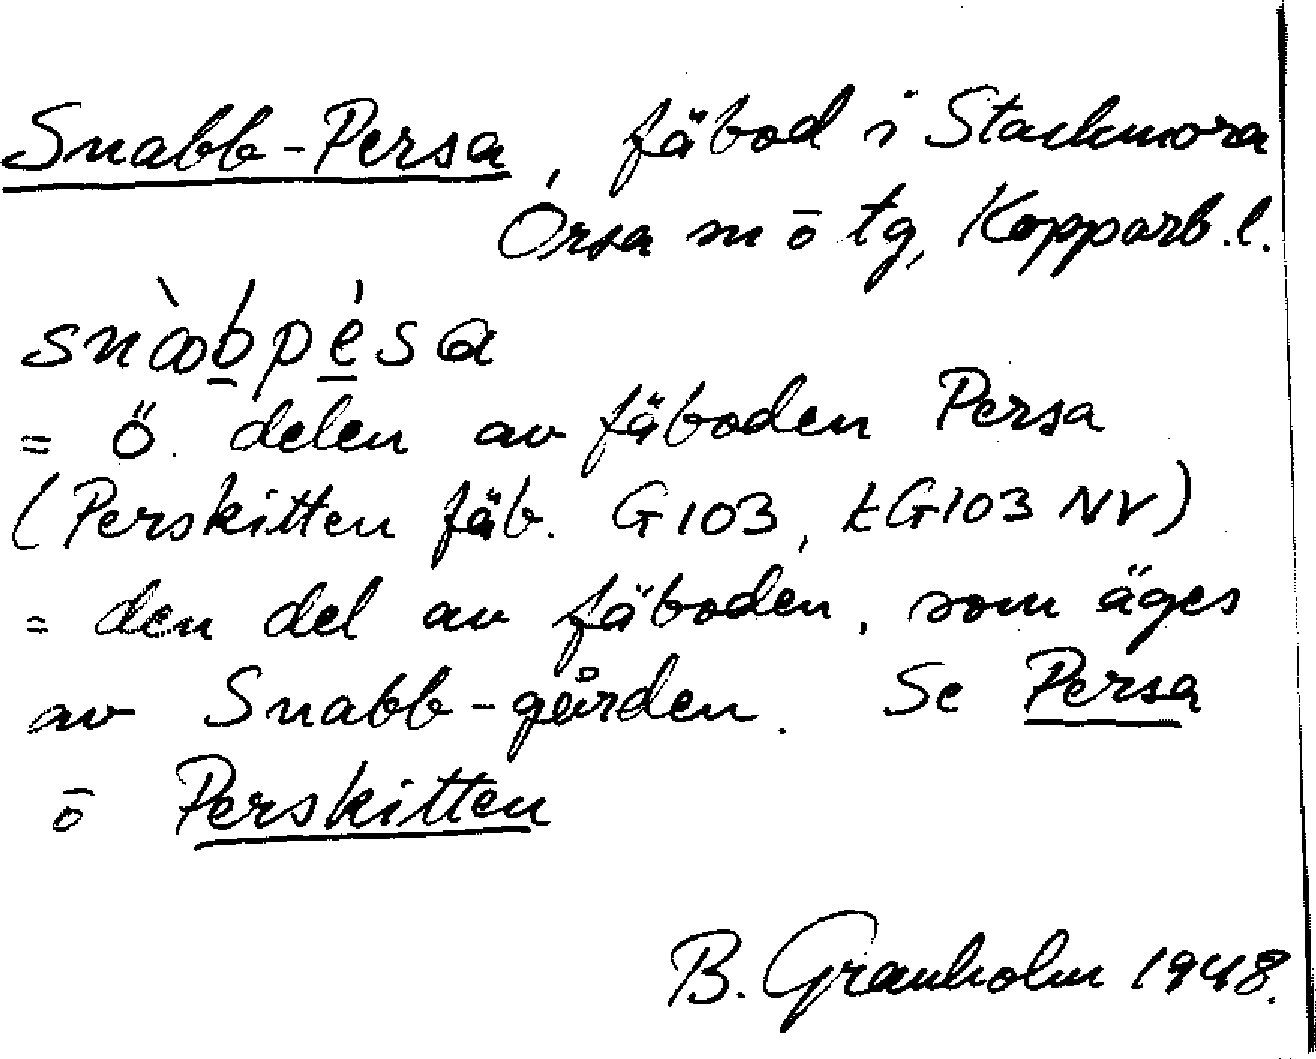 Snabb-Persa, fäbod i Stackmora
Orsa sn ō tg, Kopparb. l.
snàbpésa
= Ö. delen av fäboden Persa
(Perskitten fäb. G103, tG103 NV)
= den del av fäboden, som äges
av Snabb-gården. Se Persa
ō Perskitten
B. Granholm 1948.